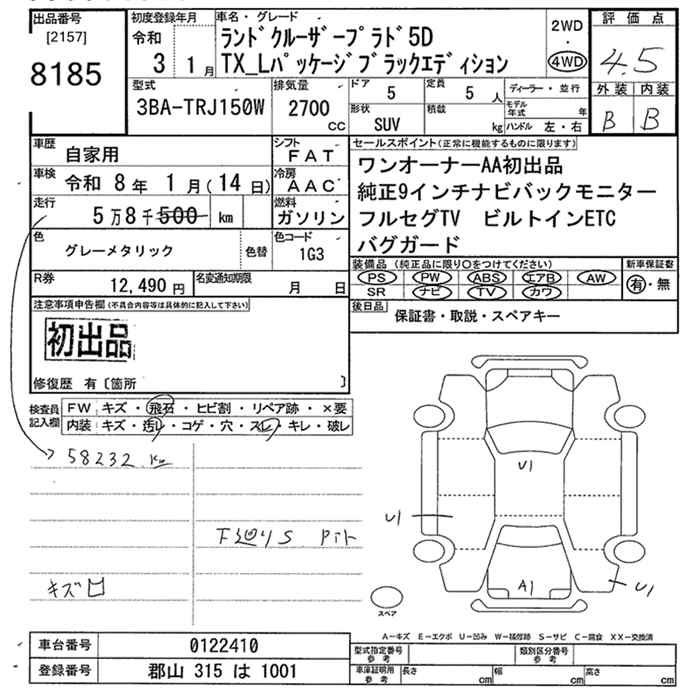 出品番号
[2157]
8185
初度登録年月
令和
3 1月
車名・グレード
ランドクルーザープラド5D
TX_Lパッケージブラックエディション
2WD
・
4WD
評価点
4.5
外装 内装
B B
型式
3BA-TRJ150W
排気量
2700
CC
ドア
5
定員
5人
形状
SUV
積載
kg
ディーラー・並行
モデル年式 年
ハンドル 左・右
車歴
自家用
シフト
FAT
車検
令和 8年 1月(14日)
冷房
AAC
走行
5万8千500 km
燃料
ガソリン
色
グレーメタリック
色替
色コード
1G3
R券
12,490円
名変通知期限
月 日
セールスポイント(正常に機能するものに限ります)
ワンオーナーAA初出品
純正9インチナビバックモニター
フルセグTV ビルトインETC
バグガード
装備品(純正品に限り○をつけてください)
PS PW ABS エアB AW
SR ナビ TV カワ
新車保証書
有・無
後日品
保証書・取説・スペアキー
注意事項申告欄(不具合内容等は具体的に記入して下さい)
初出品
修復歴 有〔箇所 〕
検査員記入欄
FW キズ・飛石・ヒビ割・リペア跡・×要
内装 キズ・汚レ・コゲ・穴・スレ・キレ・破レ
58232 km
下廻りS
キズ
U1
U1
A1
U1
スペア
A-キズ E-エクボ U-凹み W-補修跡 S-サビ C-腐食 XX-交換済
車台番号
0122410
登録番号
郡山 315 は 1001
型式指定番号
参考
類別区分番号
参考
車庫証明用
参考
長さ cm
幅 cm
高さ cm